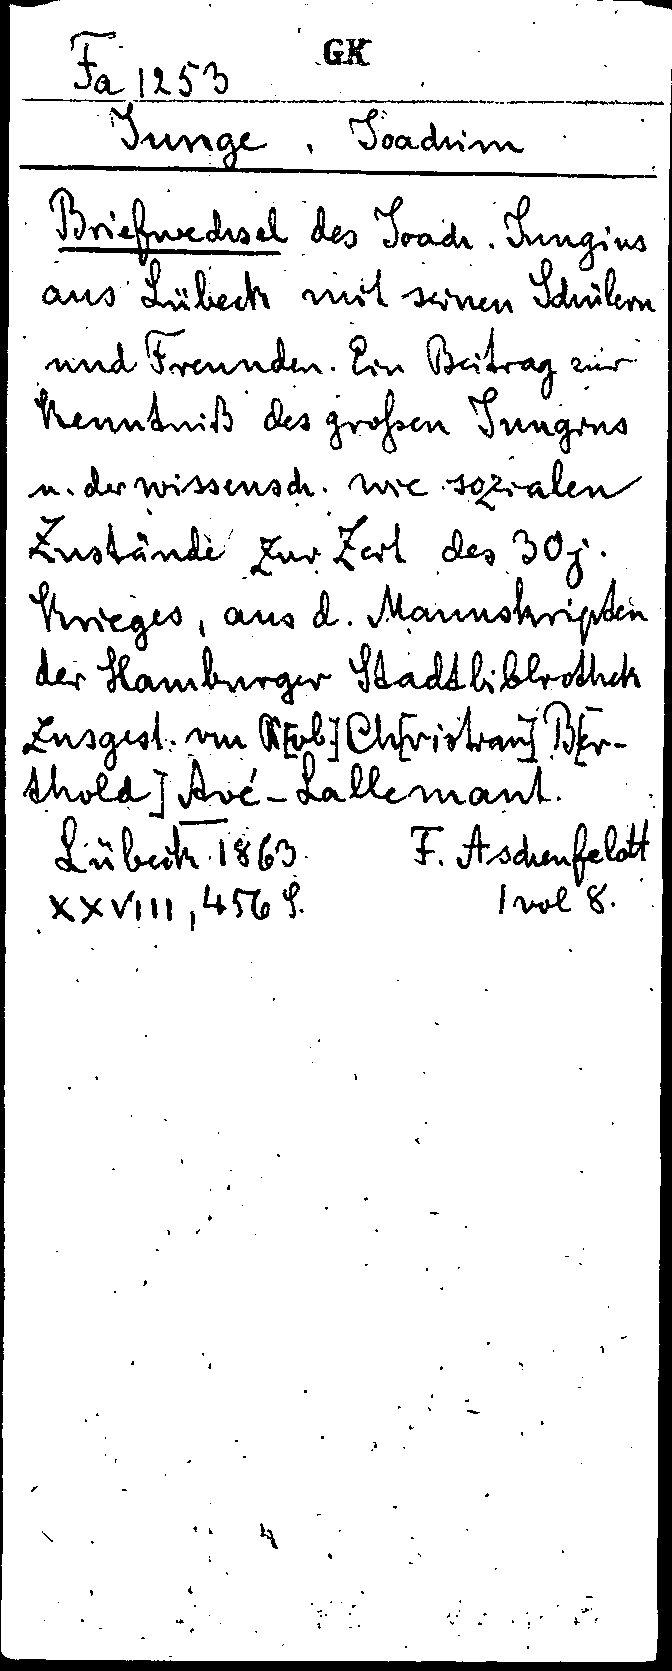 GK
Fa 1253
Junge, Joachim
Briefwechsel des Joach. Jungius
aus Lübeck mit seinen Schülern
und Freunden. Ein Beitrag zur
Kenntniß des großen Jungius
u. der wissensch. wie sozialen
Zustände zur Zeit des 30j.
Krieges, aus d. Manuskripten
der Hamburger Stadtbibliothek
Zusgest. von R[ob] Ch[ristian] B[er-
thold] Avé-Lallemant.
Lübeck 1863 F. Aschenfeldt
XXVIII, 456 S. 1 vol 8.